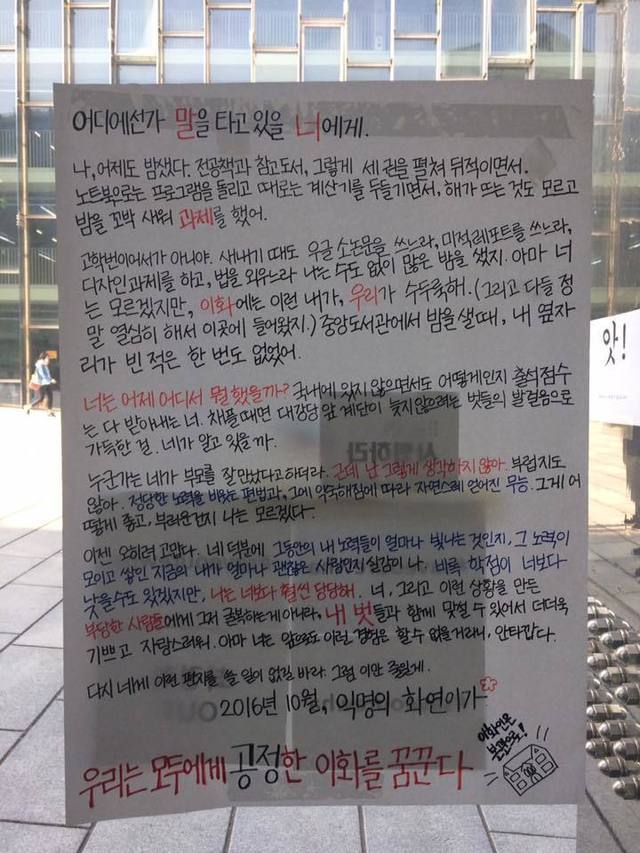 어디에선가 말을 타고 있을 너에게.
나, 어제도 밤샜다. 전공책과 참고도서, 그렇게 세 권을 펼쳐 뒤적이면서.
노트북으로는 프로그램을 돌리고 때로는 계산기를 두들기면서, 해가 뜨는 것도 모르고
밤을 꼬박 새워 과제를 했어.
고학번이어서가 아니야. 새내기 때도 우글 소논문을 쓰느라, 미적 레포트를 쓰느라,
디자인 과제를 하고, 법을 외우느라 나는 수도 없이 많은 밤을 샜지. 아마 너
는 모르겠지만, 이화에는 이런 내가, 우리가 수두룩해. (그리고 다들 정
말 열심히 해서 이곳에 들어왔지.) 중앙도서관에서 밤을 샐 때, 내 옆자
리가 빈 적은 한 번도 없었어.
너는 어제 어디서 뭘 했을까? 국내에 있지 않으면서도 어떻게인지 출석점수
는 다 받아내는 너. 채플 때면 대강당 앞 계단이 늦지 않으려는 벗들의 발걸음으로
가득한 걸. 네가 알고 있을까.
누군가는 네가 부모를 잘 만났다고 하더라. 근데 난 그렇게 생각하지 않아. 부럽지도
않아. 정당한 노력을 비웃는 편법과, 그에 익숙해짐에 따라 자연스레 얻어진 무능. 그게 어
떻게 좋고, 부러운건지 나는 모르겠다.
이젠 오히려 고맙다. 네 덕분에 그동안의 내 노력들이 얼마나 빛나는 것인지, 그 노력이
모이고 쌓인 지금의 내가 얼마나 괜찮은 사람인지 실감이 나. 비록 학점이 너보다
낮을 수도 있겠지만, 나는 너보다 훨씬 당당해. 너, 그리고 이런 상황을 만든
부당한 사람들에게 그저 굴복하는 게 아니라, 내 벗들과 함께 맞설 수 있어서 더더욱
기쁘고 자랑스러워. 아마 너는 앞으로도 이런 경험은 할 수 없을 거라니, 안타깝다.
다시 네게 이런 편지를 쓸 일이 없길 바라. 그럼 이만 줄일게.
2016년 10월, 익명의 화연이가
이화인은
본관으로!
우리는 모두에게 공정한 이화를 꿈꾼다
앗!